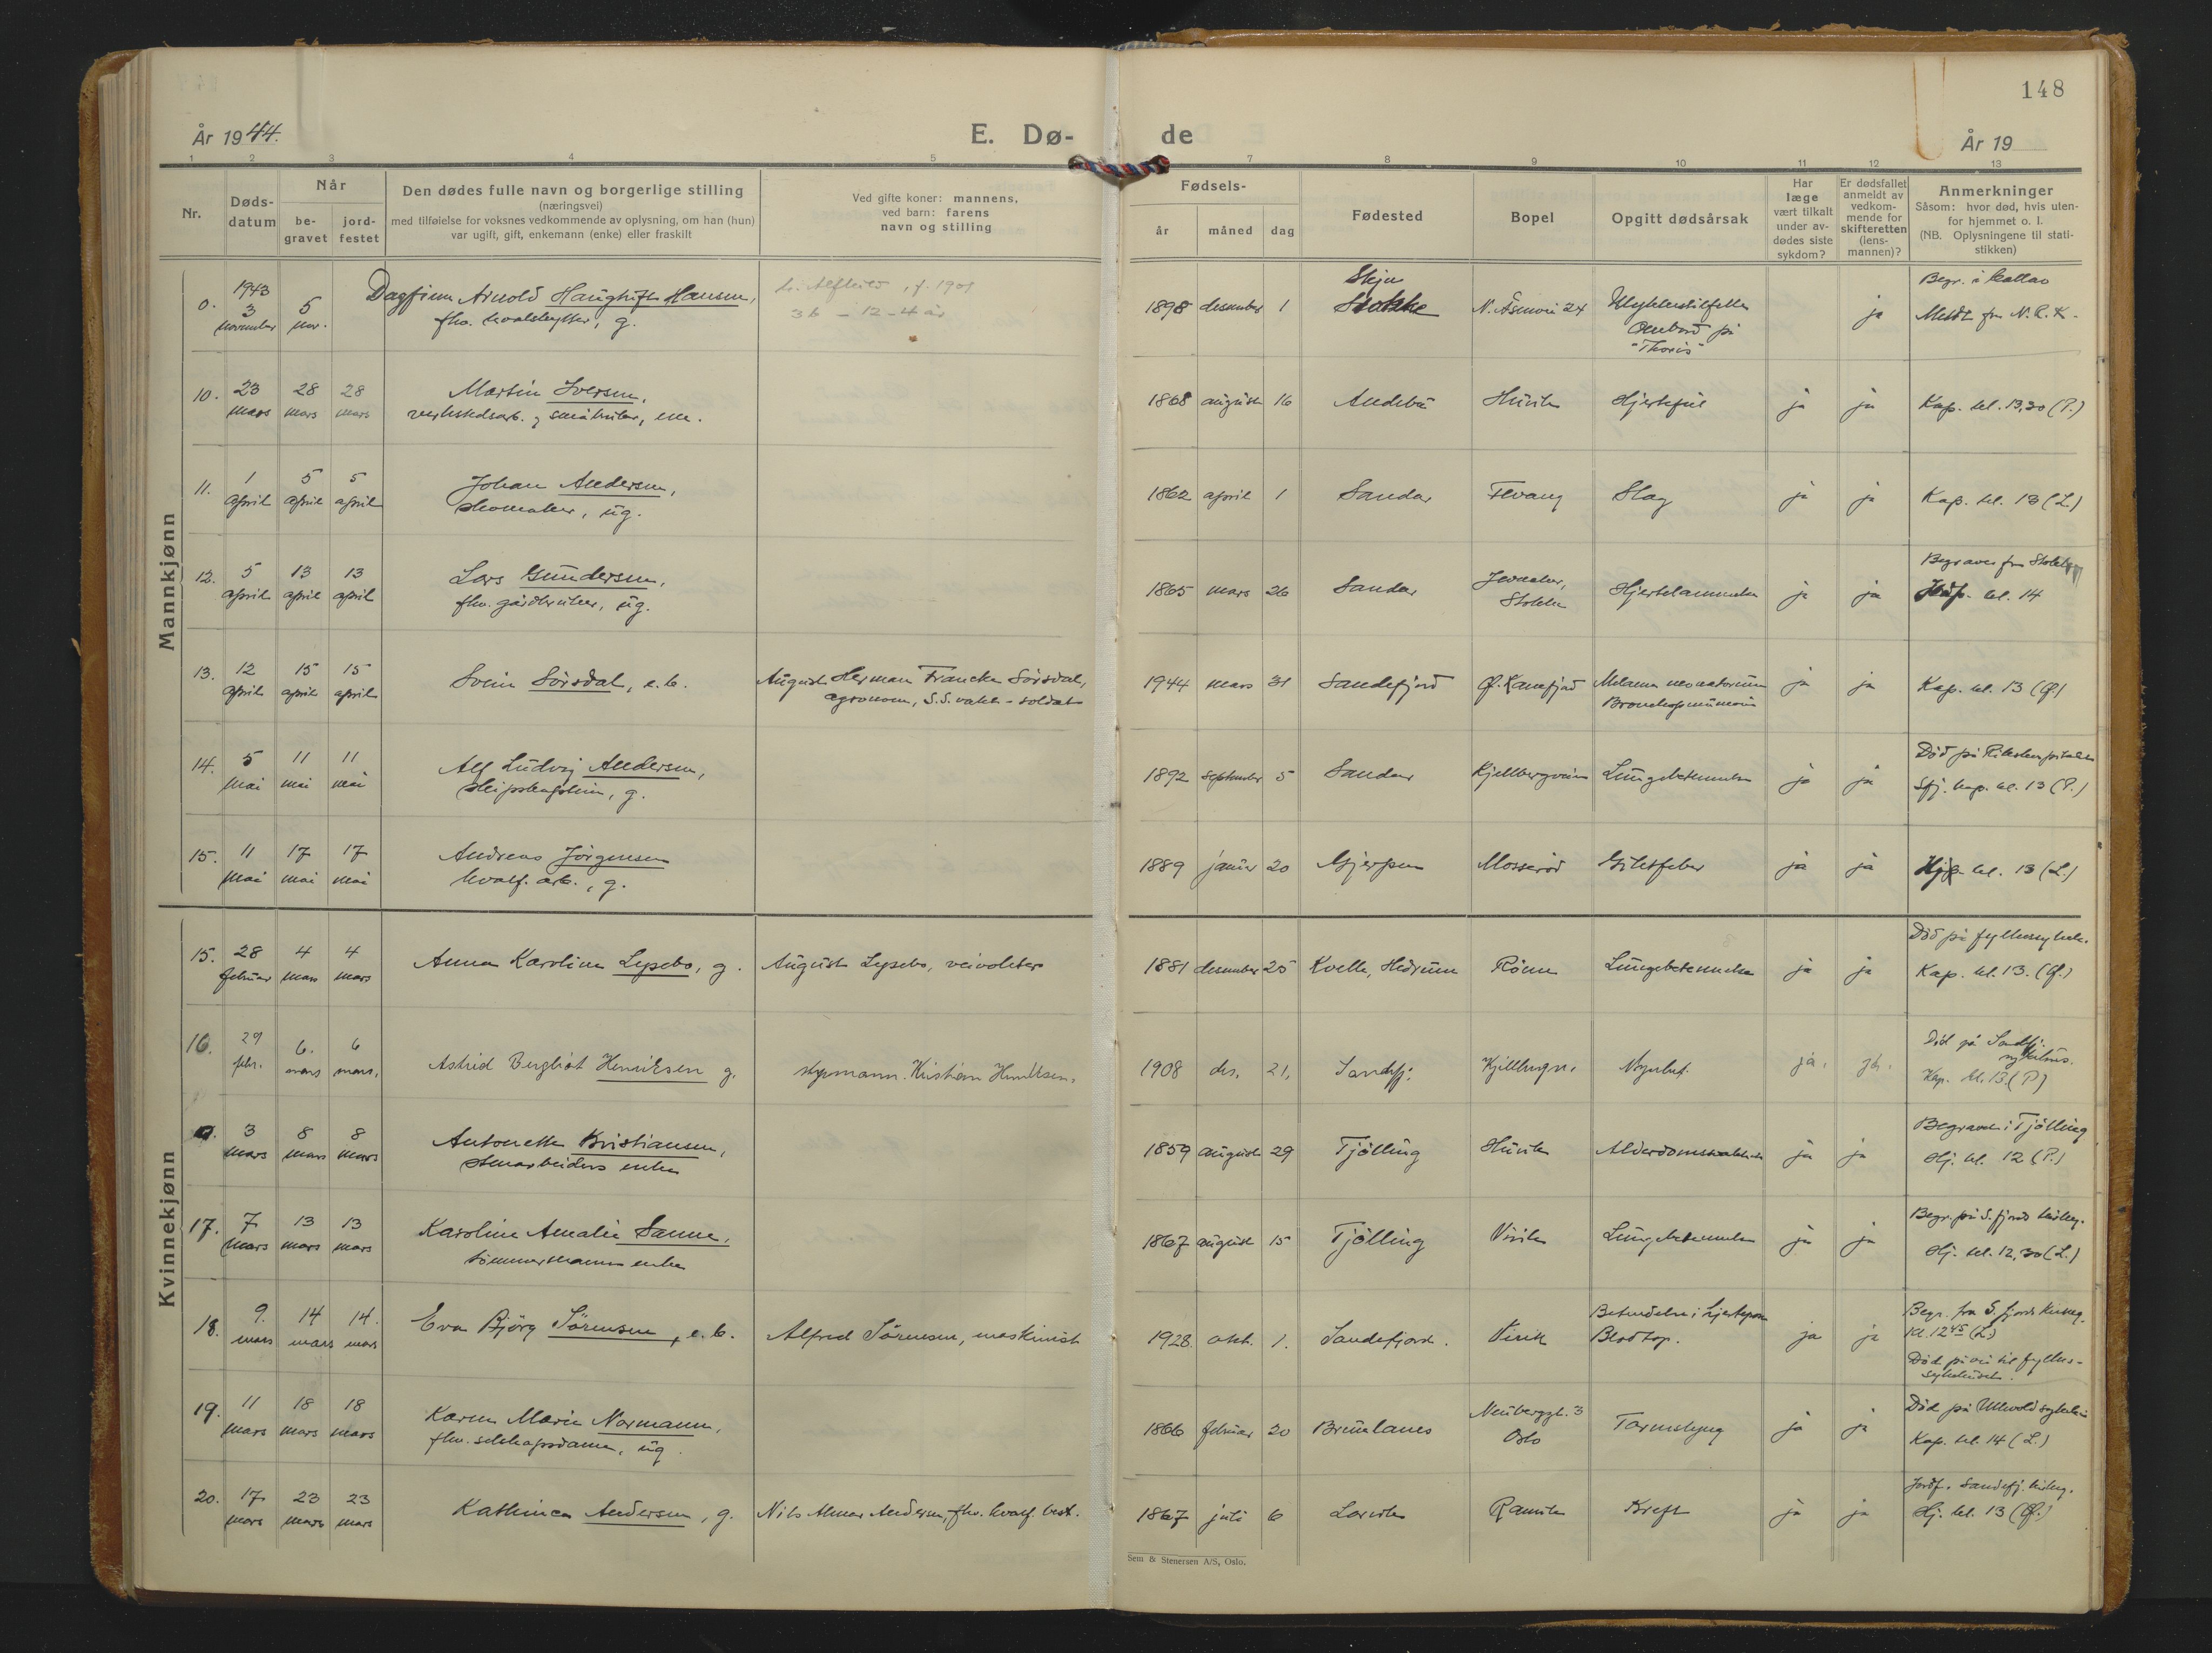 148
År 1944.
E. Dø-
de
År 19
1 2 3 4 5 7 8 9 10 11 12 13
Nr.
Døds-
datum
Når
be-
gravet
jord-
festet
Den dødes fulle navn og borgerlige stilling
(næringsvei)
med tilføielse for voksnes vedkommende av oplysning, om han (hun)
var ugift, gift, enkemann (enke) eller fraskilt
Ved gifte koner: mannens,
ved barn: farens
navn og stilling
Fødsels-
år måned dag
Fødested
Bopel
Opgitt dødsårsak
Har
læge
vært tilkalt
under av-
dødes siste
sykdom?
Er dødsfallet
anmeldt av
vedkom-
mende for
skifteretten
(lens-
mannen)?
Anmerkninger
Såsom: hvor død, hvis uten-
for hjemmet o. l.
(NB. Oplysningene til stati-
stikken)
Mannkjønn
0. 1943 3 november 5 nov. Dagfinn Arnold Hansen,
fhv. hvalskytter, g.
1898 desember 1 Skjee
Stokke
Ulykkestilfelle
Ombord på
"Thoris"
ja
Meldt fra N.R.K.
10. 23 mars 28 mars 28 mars Martin Iversen,
verkstedsarb. og småbruker, em.
1868 august 16 Andebu Huvik Hjertefeil ja ja Kap. kl. 13,30 (P.)
11. 1 april 5 april 5 april Johan Andersen,
skomaker, ug.
1862 april 1 Sandar Fevang Slag ja ja Kap. kl. 13 (L.)
12. 5 april 13 april 13 april Lars Gundersen,
fhv. gårdbruker, ug.
1865 mars 26 Sandar
Stokke Hjertelammelse ja ja Begraves fra Stokke
kl. 14
13. 12 april 15 april 15 april Svein Sørsdal, e.b. August Herman Francke Sørsdal,
agronom, S.S. vakt-soldat
1944 mars 31 Sandefjord Ø. Kamfjord Melaena neonatorum
Bronchopneumoni ja ja Kap. kl. 13 (Ø.)
14. 5 mai 11 mai 11 mai Alf Ludvig Andersen,
g.
1892 september 5 Sandar Kjellbergveien Lungebetennelse ja ja Død på Rikshospitalet
Sfj. kap. kl. 13 (P.)
15. 11 mai 17 mai 17 mai Andreas Jørgensen
hvalf. arb., g.
1889 januar 20 Gjerpen Mosserød Giktfeber ja ja kl. 13 (L.)
Kvinnekjønn
15. 28 februar 4 mars 4 mars Anna Karoline Lysebo, g. August Lysebo, veivokter
1881 desember 25 Kvelle, Hedrum Råum Lungebetennelse ja ja Død på fylkessykeh.
Kap. kl. 13. (Ø.)
16. 29 febr. 6. mars 6 mars. Astrid Bergliot Henriksen g. styrmann Kristian Henriksen.
1908 des. 21. Sandefj. Kjellbergv. ja. ja. Død på Sandefj.
sykehus.
Kap. kl. 13 (P)
0. 3 mars 8 mars 8 mars Antonette Kristiansen,
stenarbeiders enke
1859 august 29 Tjølling Huvik Alderdomssvakhet ja ja Begravet i Tjølling
Hj. kl. 12 (P.)
17. 7 mars 13 mars 13 mars Karoline Amalie Sanne,
tømmermanns enke
1867 august 15 Tjølling Virik Lungebetennelse ja ja Begr. på S.fjords kirkeg.
Hj. kl. 12,30 (L.)
18. 9. mars 14 mars 14. mars Eva Bjørg Sørensen, e.b. Alfred Sørensen, maskinist
1928. okt. 1. Sandefjord. Virik Betendelse i hjerteposen
Blodtop. ja ja Begr. fra S.fjords kirkeg.
Kl. 12 45 (L)
Død på vei til fylkes-
sykehuset.
19. 11 mars 18 mars 18 mars Karen Marie Normann,
fhv. selskapsdame, ug.
1866 februar 20 Brunlanes Neuberggt. 3
Oslo Tarmslyng ja ja Død på Ullevål sykehus
Kap. kl. 14 (L.)
20. 17 mars 23 mars 23 mars Kathinca Andersen, g. Nils Almar Andersen, fhv. hvalf. best.
1867 juli 6 Larvik Ramvik Kreft ja ja Jordf. Sandefj. kirkeg.
Hj. kl. 13 (Ø.)
Sem & Stenersen A/S, Oslo.